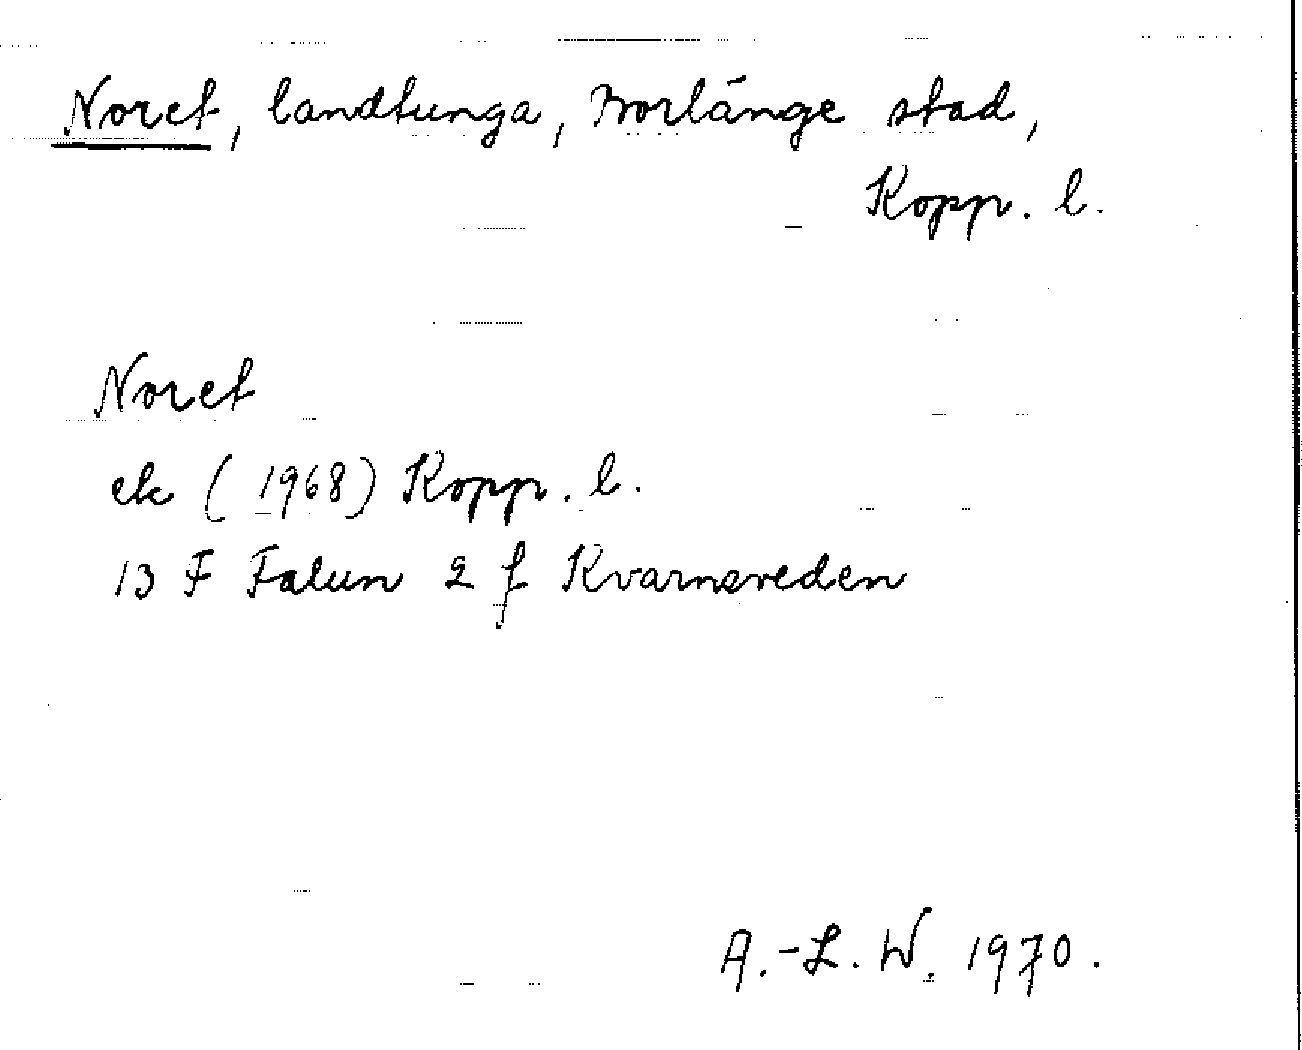 Noret, landtunga, Borlänge stad,
Kopp. l.
Noret
ek (1968) Kopp. l.
13 F Falun 2 f Kvarnsveden
A.-L. W. 1970.